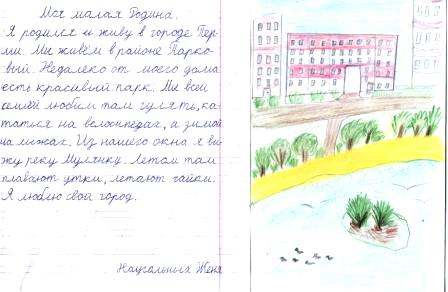 Моя малая Родина.
Я родился и живу в городе Пер-
ми. Мы живём в районе Парко-
вый. Недалеко от моего дома
есть красивый парк. Мы всей
семьёй любим там гулять, ка-
таться на велосипедах, а зимой
на лыжах. Из нашего окна я ви-
жу реку Мулянку. Летом там
плавают утки, летают чайки.
Я люблю свой город.
Наугольных Женя